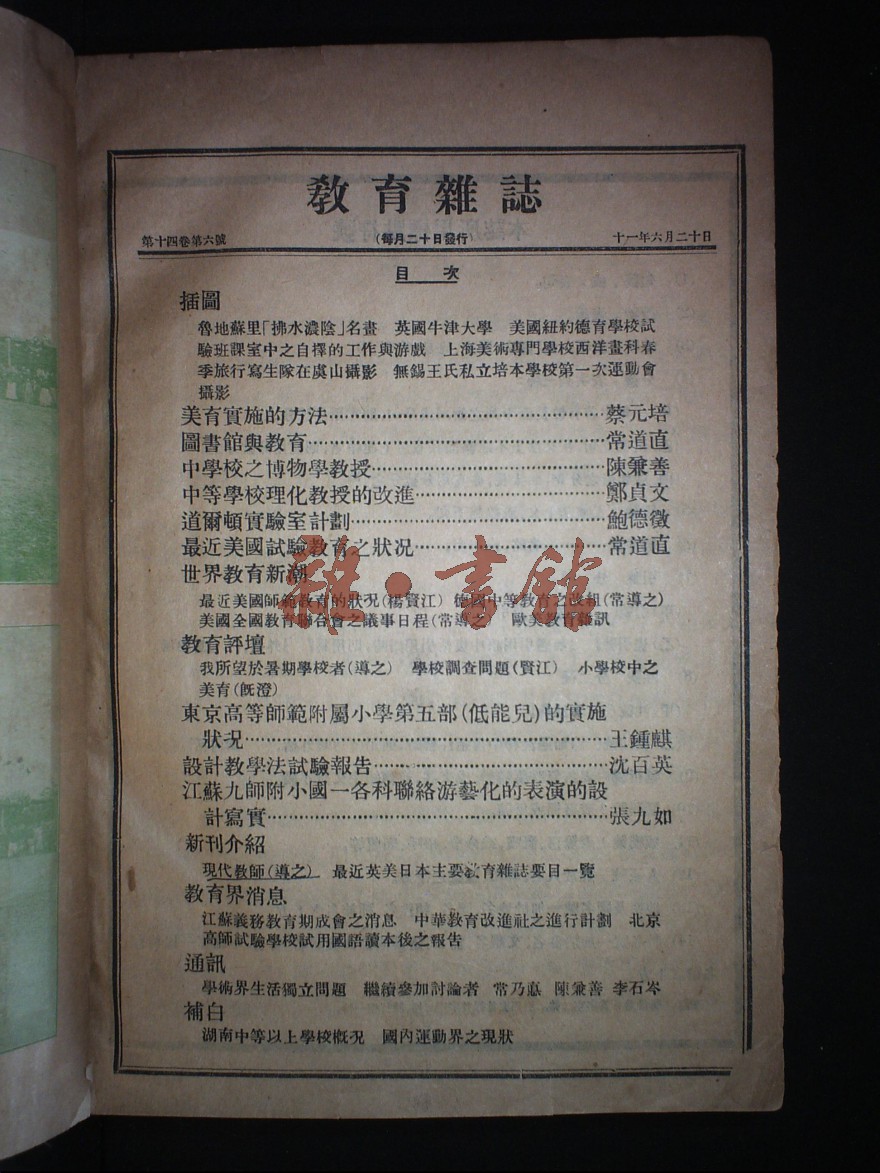 教育雜誌
第十四卷第六號 (每月二十日發行 十一年六月二十日
目次
插圖
魯地蘇里「拂水濃陰」名畫 英國牛津大學 美國紐約德育學校試
驗班課室中之自擇的工作與游戲 上海美術專門學校西洋畫科春
季旅行寫生隊在虞山攝影 無錫王氏私立培本學校第一次運動會
攝影
美育實施的方法……蔡元培
圖書館與教育……常道直
中學校之博物學教授……陳兼善
中等學校理化教授的改進……鄭貞文
道爾頓實驗室計劃……鮑德徵
最近美國試驗教育之狀況……常道直
世界教育新潮
最近美國師範教育的狀況(楊賢江) 德國中等教育之改組(常導之)
美國全國教育聯合會之議事日程(常導之) 歐美教育雜訊
教育評壇
我所望於暑期學校者(導之) 學校調查問題(賢江) 小學校中之
美育(旣澄)
東京高等師範附屬小學第五部(低能兒)的實施
狀況……王鍾麒
設計教學法試驗報告……沈百英
江蘇九師附小國一各科聯絡游藝化的表演的設
計寫實……張九如
新刊介紹
現代教師(導之) 最近英美日本主要教育雜誌要目一覽
教育界消息
江蘇義務教育期成會之消息 中華教育改進社之進行計劃 北京
高師試驗學校試用國語讀本後之報告
通訊
學術界生活獨立問題 繼續參加討論者 常乃悳 陳兼善 李石岑
補白
湖南中等以上學校概況 國內運動界之現狀
雜·書館